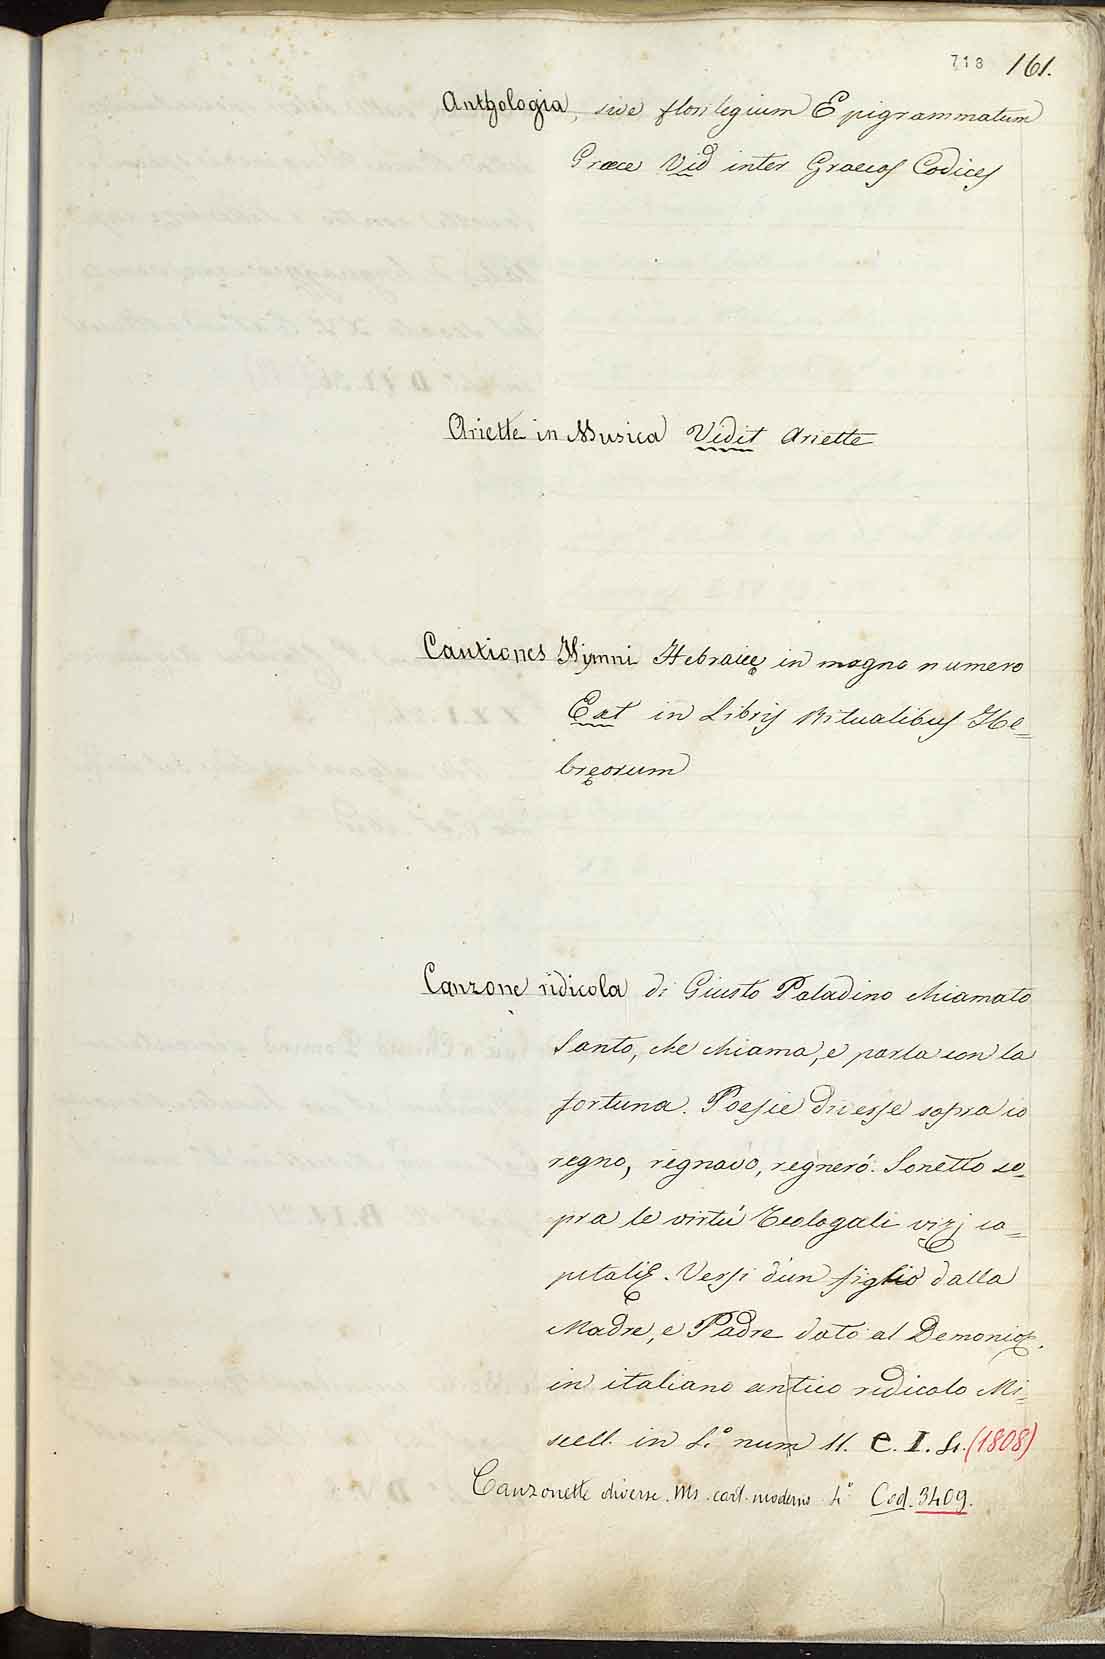 713 161.
Anthologia, sive florilegium Epigrammatum
Græce Vid inter Graecos Codices
Ariette in Musica Vidit Ariette
Cantiones Hymni Hebraicę in magno numero
Ext in Libris Ritualibus He=
bręorum
Canzone ridicola di Giusto Paladino chiamato
Santo, che chiama, e parla con la
fortuna. Poesie diverse sopra io
regno, regnavo, regneró. Sonetto so=
pra le virtú Teologali vizj ca=
pitali. Versi d'un figlio dalla
Madre, e Padre dato al Demonio.
in italiano antico ridicolo Mi=
scell. in 4.º num 11. C. I. 4. (1808)
Canzonette diverse. Ms. cart. moderno 4º Cod. 3409.